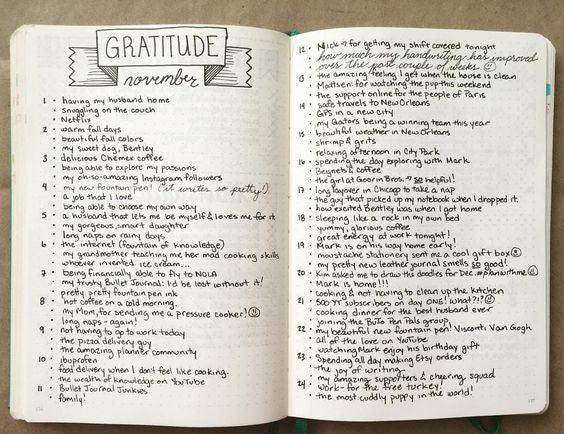 GRATITUDE
november
1 • having my husband home
• snuggling on the couch
• Netflix
2 • warm fall days
• beautiful fall colors
• my sweet dog, Bentley
3 • delicious Chemex coffee
• being able to explore my passions
• my oh-so-amazing Instagram followers
4 • my new fountain pen! (it writes so pretty!)
• a job that I love
• being able to choose my own way
5 • a husband that lets me be myself & loves me for it
• my gorgeous, smart daughter
• long naps on rainy days
6 • the internet (fountain of knowledge)
• my grandmother teaching me her mad cooking skills
• whoever invented ice cream...
7 • being financially able to fly to NOLA
• my trusty Bullet Journal: I'd be lost without it!
• pretty pretty fountain pen ink
8 • hot coffee on a cold morning.
• my Mom, for sending me a pressure cooker!
• long naps - again!
9 • not having to go to work today
• the pizza delivery guy
• the amazing planner community
10 • ibuprofen
• food delivery when I don't feel like cooking.
• the wealth of knowledge on YouTube
11 • Bullet Journal Junkies
• family!
12 • Nick → for getting my shift covered tonight
• how much my handwriting has improved
over the past couple of weeks
13 • the amazing feeling I get when the house is clean
• Mattsen: for watching the pup this weekend
• the support online for the people of Paris
14 • safe travels to New Orleans
• GPS in a new city
• my Gators being a winning team this year
15 • beautiful weather in New Orleans
• shrimp & grits
• relaxing afternoon in City Park
16 • spending the day exploring with Mark
• Beignets & coffee
• the girl at Goorin Bros. → so helpful!
17 • long layover in Chicago to take a nap
• the guy that picked up my notebook when I dropped it.
• how excited Bentley was when I got home
18 • sleeping like a rock in my own bed
• yummy, glorious coffee
• great energy at work tonight!
19 • Mark is on his way home early!
• moustache stationery sent me a cool gift box
• my pretty new leather journal smells so good!
20 • Kim asked me to draw the doodles for Dec. #planwithme
• Mark is home!!!
• cooking & not having to clean up the kitchen
21 • 500 YT subscribers on day ONE! what?!?
• cooking dinner for the best husband ever
• joining the BuJo Pen Pals group
22 • my beautiful new fountain pen! Visconti Van Gogh
• all of the love on YouTube
• watching Mark enjoy his birthday gift
23 • Spending all day making Etsy orders
• the joy of writing
• my amazing supporters & cheering squad
24 • work - for the free turkey!
• the most cuddly puppy in the world!